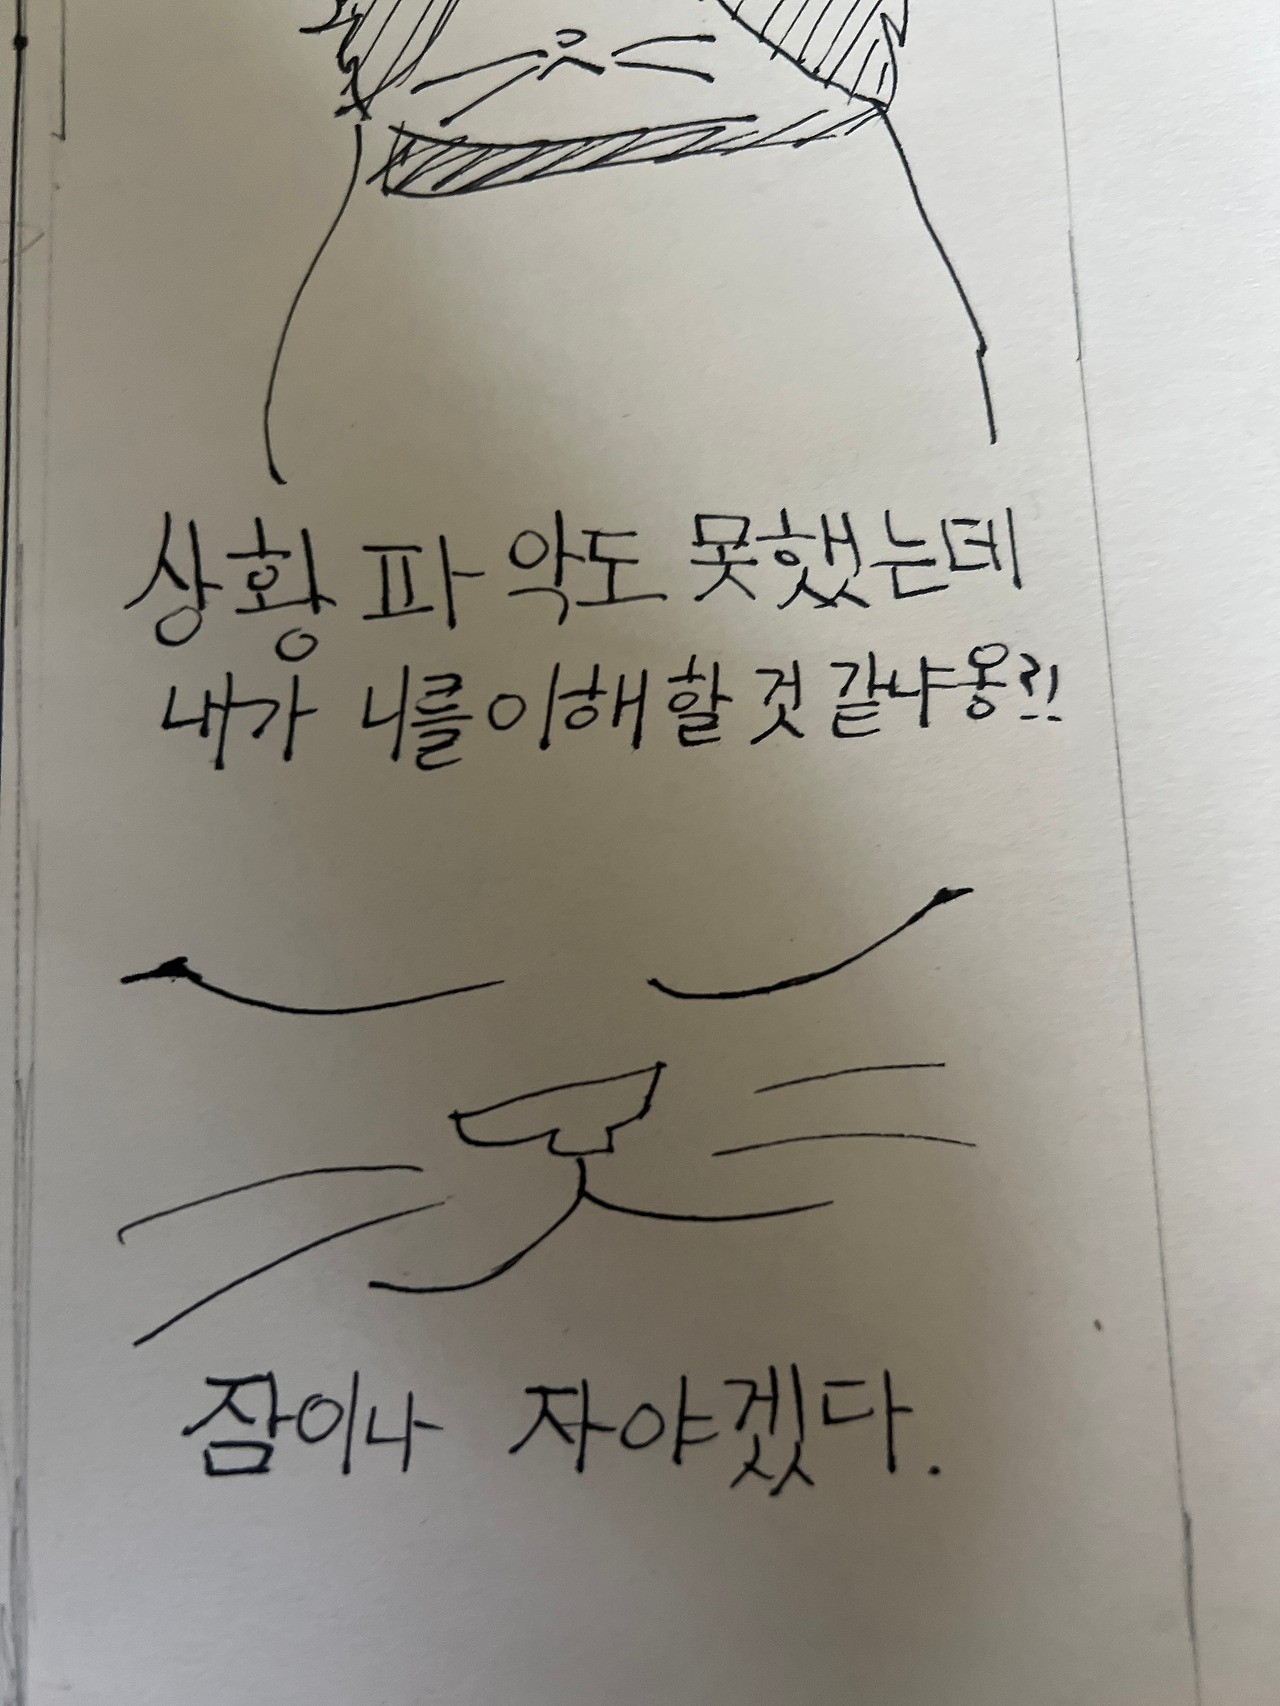 상황 파악도 못했는데
내가 니를 이해할 것 같냐옹?!
잠이나 자야겠다.